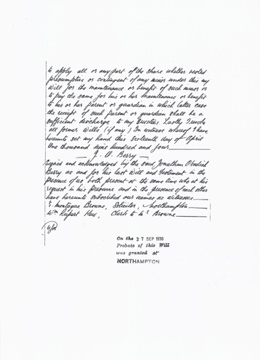 to apply all or any part of the share whether vested
presumptive or contingent of any minor under this my
Will for the maintenance or benefit of such minor or
to pay the same for his or her maintenance or benefit
to his or her parent or guardian in which latter case
the receipt of such parent or guardian shall be a
sufficient discharge to my Trustees Lastly I revoke
all former Wills (if any) In witness whereof I have
hereunto set my hand this day of April
One thousand nine hundred and four
J. O. Berry
Signed and acknowledged by the said Jonathan Obadiah
Berry as and for his last Will and testament in the
presence of us both present at the same time who at his
request in his presence and in the presence of each other
have hereunto subscribed our names as witnesses
Montague Browne, Solicitor, Northampton
Wm Rupert Clerk to Mr Browne
On the 27 SEP
Probate of this Will
was granted at
NORTHAMPTON